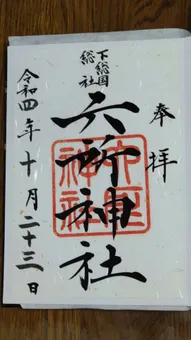 奉拝
下総国
総社
六所神社
令和四年十月二十三日